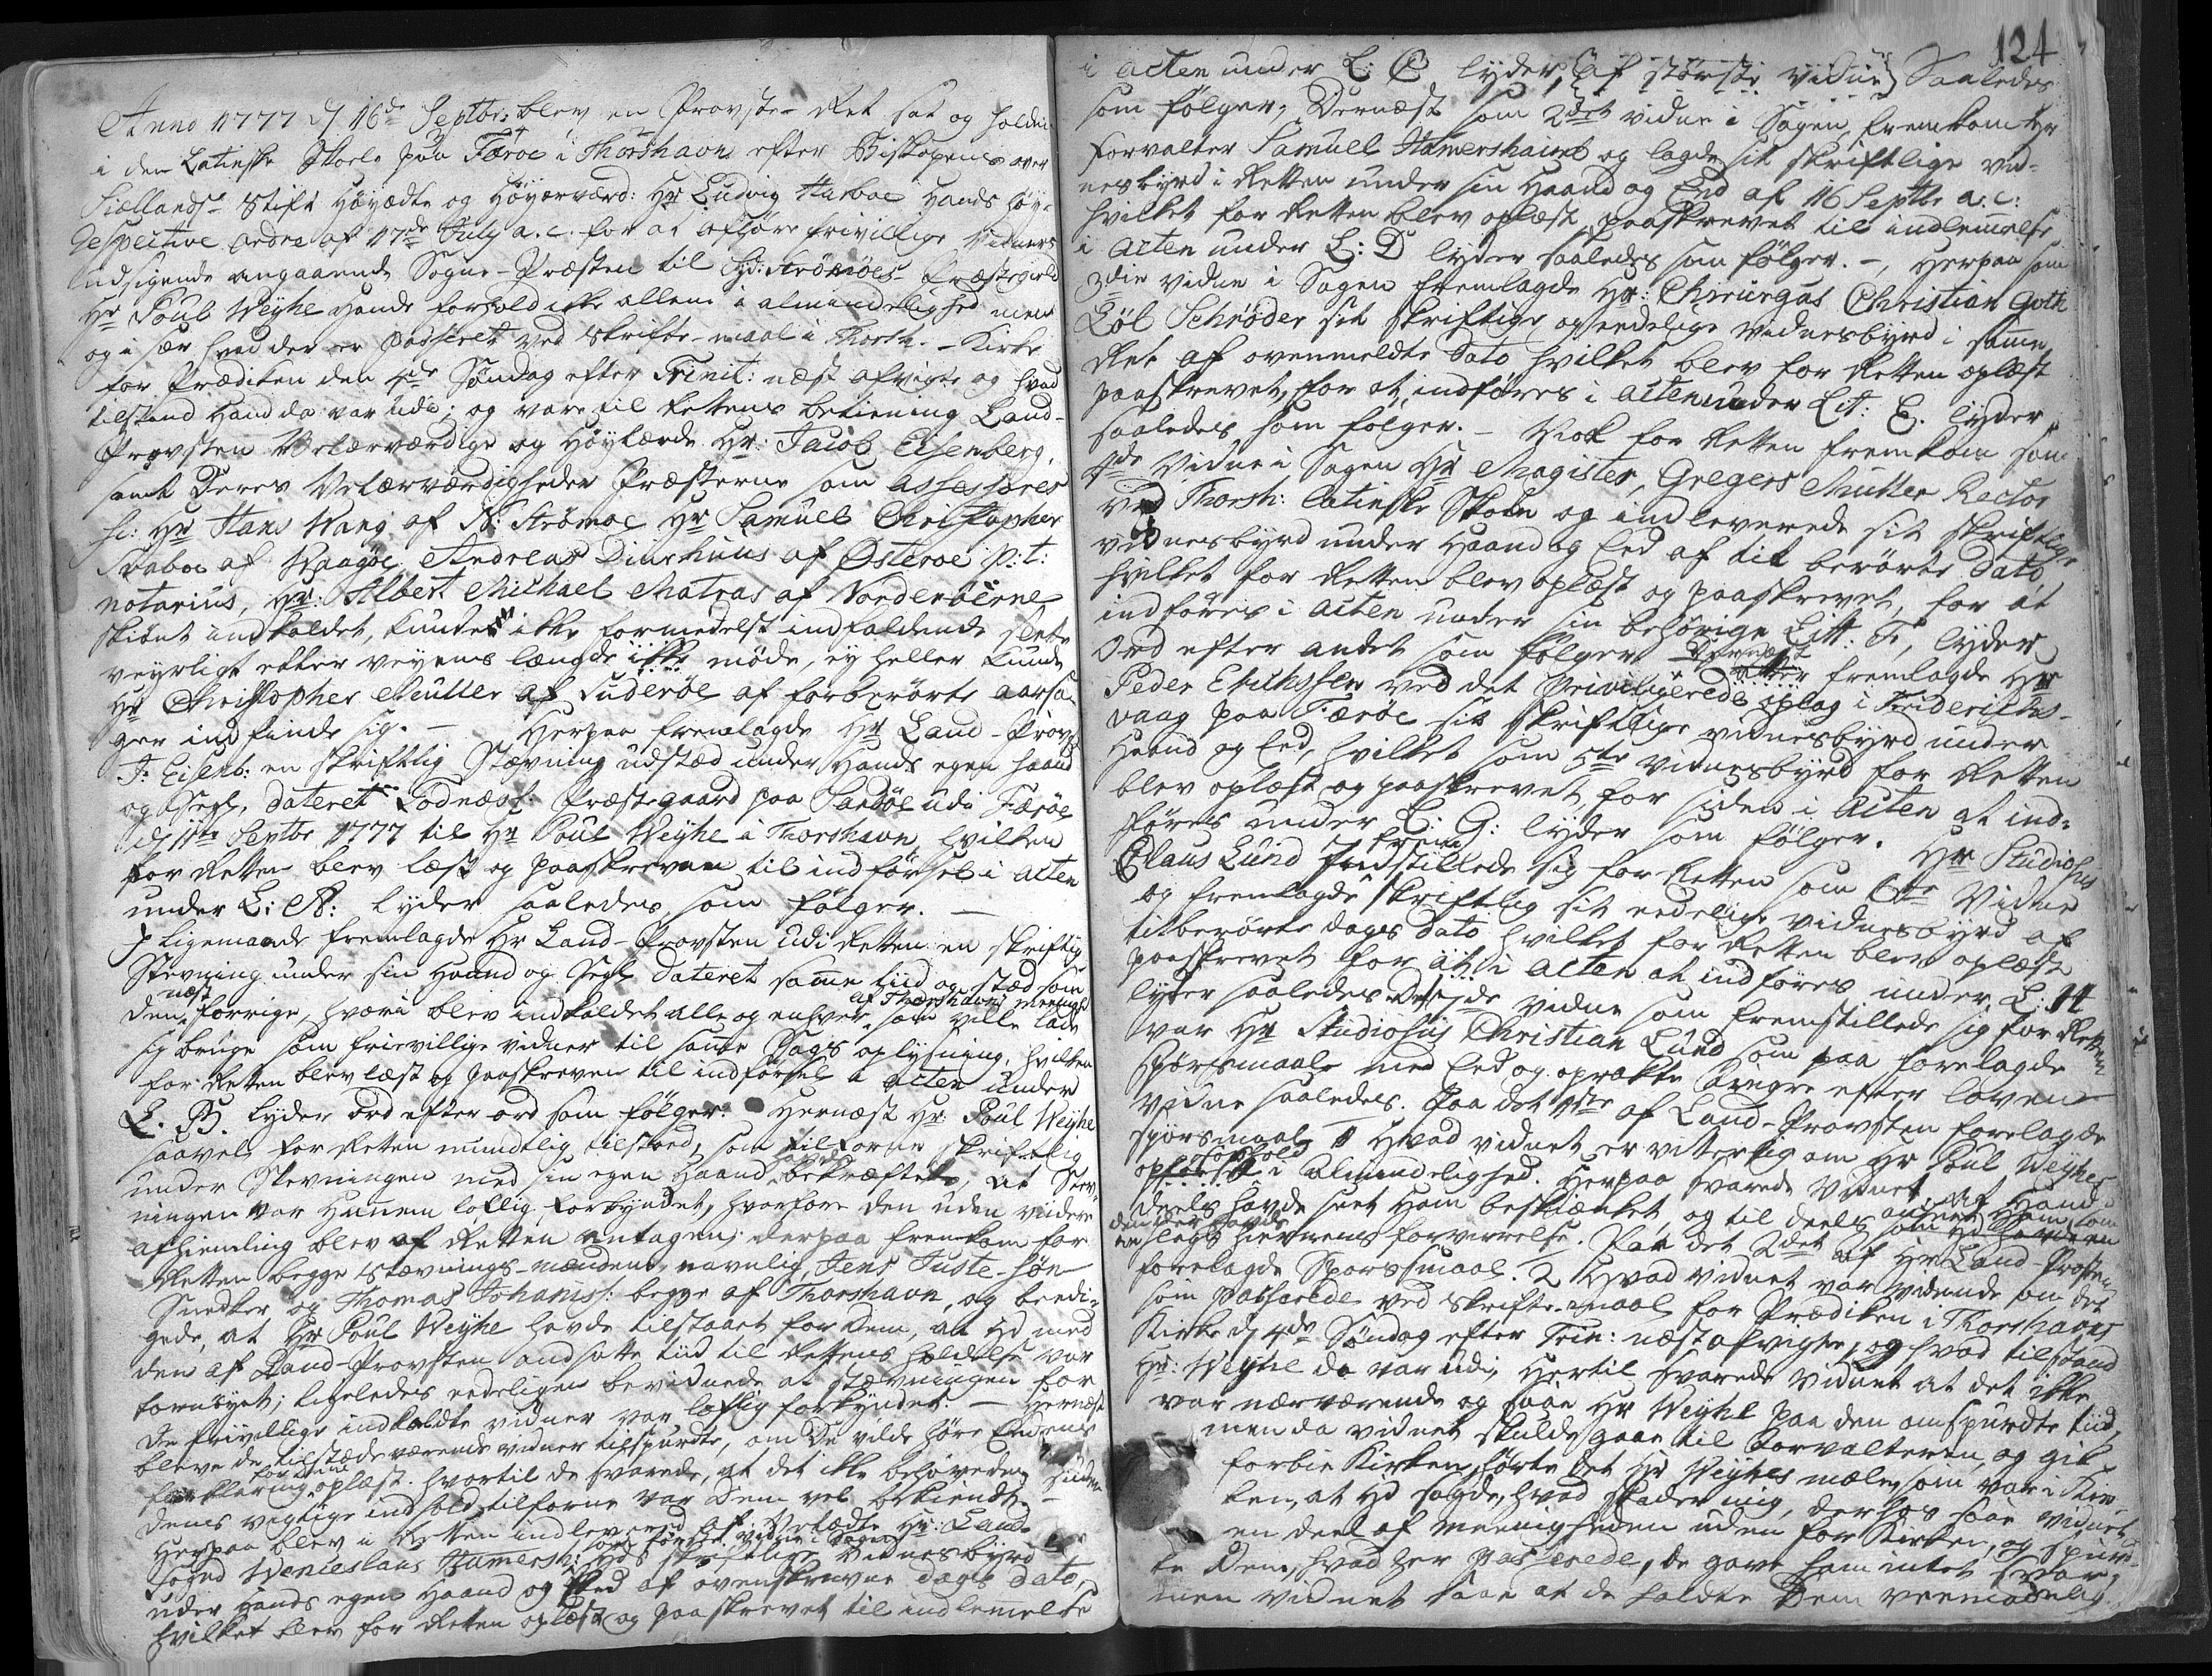 Anno 1777 d 16de Septbr: blev en Provste-Ret sat og holden
i den Latinske Skole paa Færøe i Thorshavn efter Biskopens over
Siællands Stift Höyædle og Höyærværd: Hr Ludvig Harboe Hands höy-
respective ordre af 17de July a.c. for at afhøre frivillige Vidners
udsigende angaaende Sogne-Præsten til Syd: Strömöes Præstegield
Hr Poul Weyhe Hands forhold ikke allene i almindelighed men
og i sær hvad der er passeret ved Skrifte-maal i Thorsh.- Kirke
for Prædiken den 4de Söndag efter Trinit: næst afvigte og hvad
tilstand Hand da var udi; og vare til Rettens betiening Land-
Provsten Velærværdige og Höylærde Hr: Jacob Eisenberg,
samt Deres Velærværdigheder Præsterne som Assessores
sc: Hr Hans Wang af N: Strømoe Hr Samuel Christopher
Svaboe af Waagøe, Andreas Diurhuus af Østeroe p:t:
notarius, Hr: Albert Michael Matras af Norderöerne
skiönt indkaldet, kunde ikke formedelst indfaldende slet
veyrligt etter veyens længde ikke möde, ey heller kunde
Hr Christopher Müller af Suderöe af forberörte aarsa-
ger indfinde sig. — Herpaa fremlagde Hr Land-Provst
J: Eisenb: en skriftlig Stævning udstæd under Hands egen Haand
og Segl, dateret Todnæss: Præstegaard paa Sandöe udi Færöe
d 11te Septbr 1777 til Hr Poul Weyhe i Thorshavn, hvilken
for Retten blev læst og paaskreven til indförsel i acten
under L: A: lyder saaledes som fölger. —
J ligemaade fremlagde Hr Land-Provsten udi Retten en skriftlig
Stevning under sin Haand og Segl dateret samme tiid og stæd som
næst af Thorshavns meenighed
den forrige, hvori blev indkaldet alle og enhver som ville lade
sig bruge som frievillige vidner til samme Sags oplysning, hvilken
for Retten blev læst og paaskreven til indförsel i acten under
L. B. lyder ord efter ord som fölger. Hernæst Hr: Poul Weyhe
saavel for Retten mundtlig tilstoed, som tilforne skriftlig
under Stevningen med sin egen Haand bekræftet, at Stev-
ningen var Hannem lovlig forkyndet, hvorfore den uden videre
afhiemling blev af Retten antagen; derpaa fremkom for
Retten begge Stævnings-mændene, navnlig, Jens Juste-søn
Snedker og Thomas Johaniss: begge af Thorshavn, og beedi-
gede, at Hr Poul Weyhe havde tilstaaet for dem, at Hd med
den af Land-Provsten ansatte tiid til Rettens holdelse var
fornöyet; ligeledes eedeligen bevidnede at stævningen for
De frivillige indkaldte vidner var lovlig forkyndet. — Hernæst
bleve de tilstædeværende vidner tilspurdte, om De vilde höre Eedens
forklaring oplæst. hvortil de svarede, at det ikke behövedes, siden
dens vigtige indhold tilforne var Dem vel bekiendt. —
Herpaa blev i Retten indleveret af Velædle Hr: Land-
som förste vidne i Sagen
fogud Wenceslaus Hamersh: Hds skriftlige Vidnesbyrd
under Hands egen Haand og Eed af ovenskrevne dags dato,
hvilket blev for Retten oplæst og paaskrevet til indlemelse
124
i acten under L: C lyder, (af störste vidne) Saaledes
som fölger; Dernæst som 2det vidne i Sagen fremkom Hr
Forvalter Samuel Hamershaimb og lagde sit skriftlige vid-
nesbyrd i Retten under sin Haand og Eed af 16 Septbr a.c:
hvilket for Retten blev oplæst, paaskrevet til indlemelse
i acten under L: D lyder saaledes som fölger. —, Herpaa som
3die vidne i Sagen fremlagde Hr: Chirurgus Christian Gott-
Löb Schrøder sit skriftlige og eedelige vidnesbyrd i samme
Ret af ovenmeldte dato hvilket blev for Retten oplæst
paaskrevet, for at indföres i acten under Lit: E. lyder
saaledes som fölger. — Nok for Retten fremkom som
4de Vidne i Sagen Hr Magister, Gregers Müller Rector
ved Thorsh: latinske Skole og indleverede sit skriftlige
vidnesbyrd under Haand og Eed af tit berörte dato
hvilket for Retten blev oplæst og paaskrevet, for at
indföres i acten under sin behörige Litt. F, lyder
Ord efter andet som fölger. Dernæst fremlagde Hr
Peder Erichssen ved det Privilegerede oplag i Friderichs-
vaag paa Færöe sit skriftlige vidnesbyrd under
Haand og Eed, hvilket som 5te vidnesbyrd for Retten
blev oplæst og paaskrevet for siden i Acten at ind-
föres under L: G: lyder som fölger. Hr Studiosus
Claus Lund fremstillede sig for Retten som 6te Vidne
og fremlagde skriftlig sit eedelige vidnesbyrd af
titberörte dags dato hvilket for Retten blev oplæst
paaskrevet for at i acten at indföres under L: H
lyder saaledes Det 7de vidne som fremstillede sig for Retten
var Hr Studiosus Christian Lund som paa forelagde
Spörsmaale med Eed og oprakte Fingre efter loven
vidne saaledes. Paa det 1ste af Land-Provsten forelagde
spörsmaal 1 Hvad vidnet er vitterlig om Hr Poul Weyhes
forhold
opförsel i Almindelighed. Herpaa svarede Vidnet, at Hand
deels havde seet Ham beskienket, og til deels anseet Ham som
den der havde en slags hiernens forvirrelse. Paa det 2det af Hr Land-Provsten
forelagde Sporssmaal. 2 Hvad vidnet var vidende om det
som Passerede ved Skrifte-maal for Prædiken i Thorshavns
Kirke d 4de Söndag efter Trin: næstafvigte, og hvad tilstand
Hr: Weyhe da var udi, Hertil svarede vidnet at det ikke
var nærværende og saae Hr Weyhe paa den omspurdte tiid,
men da vidnet skulde gaae til Forvalteren, og gik
forbie Kirken, hörte det Hr Weyhes mæle, som var i Kir-
ken, at Hd sagde, hvad skader mig, derhos saae vidnet
en deel af meenigheden uden for Kirken, og spur-
te Dem, hvad her passerede, de gave ham intet svar,
men vidnet saae at de holdte Dem veemodelig